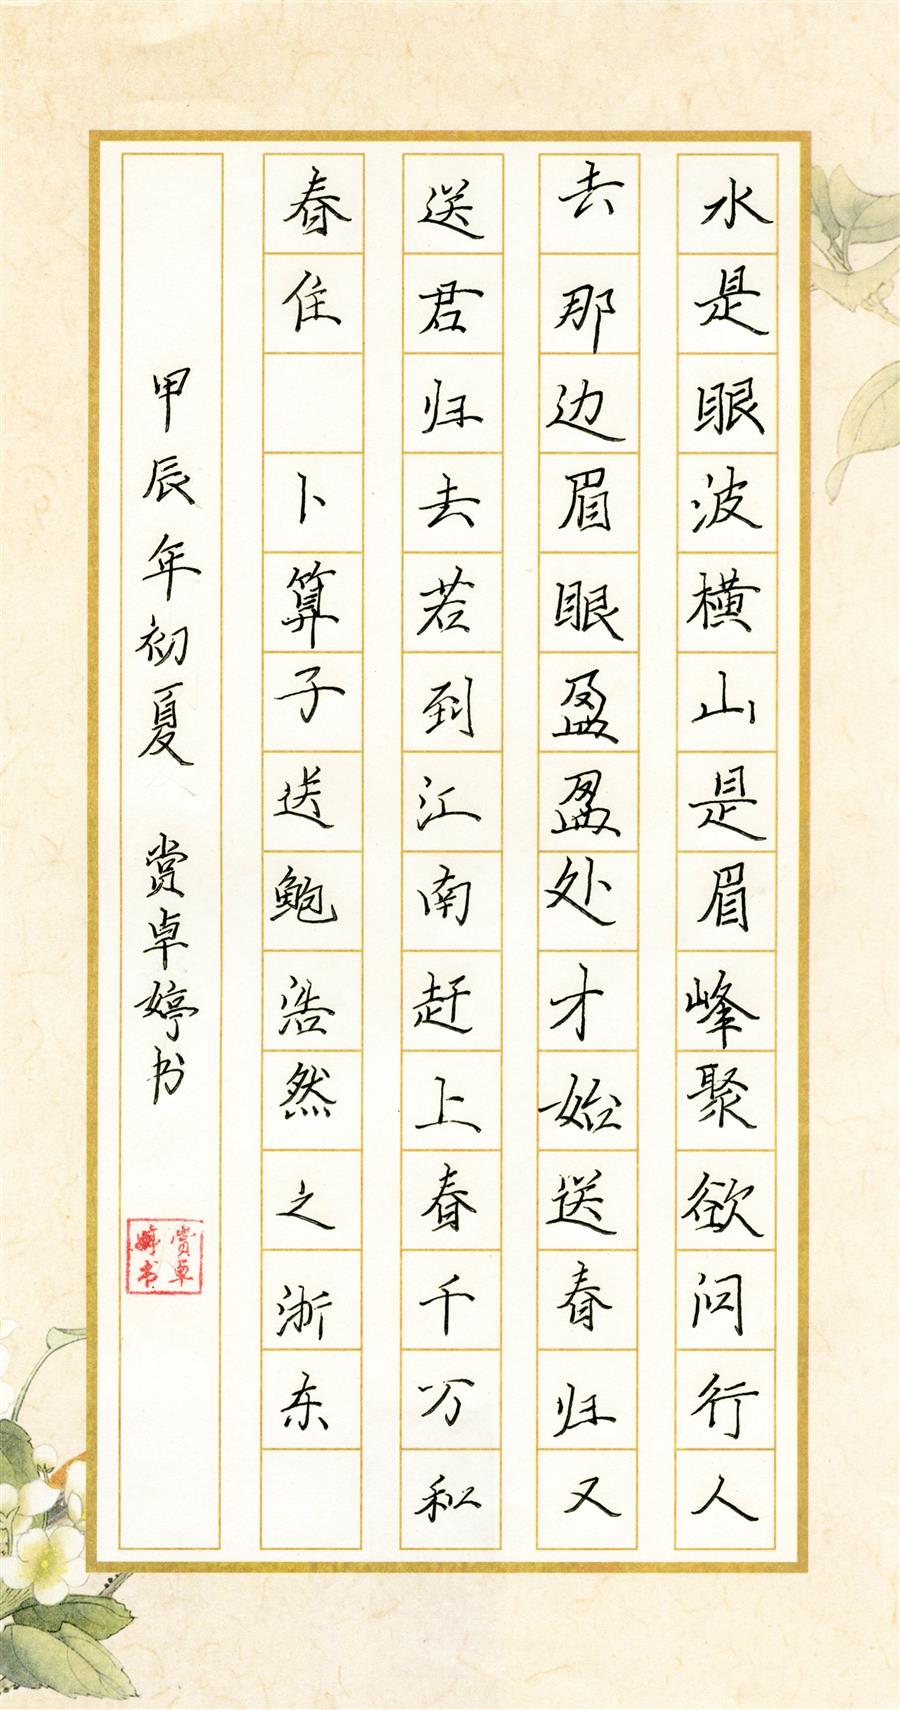 水是眼波横山是眉峰聚欲问行人
去那边眉眼盈盈处才始送春归又
送君归去若到江南赶上春千万和
春住 卜算子送鲍浩然之浙东
甲辰年初夏 赏卓婷书
赏卓
婷书